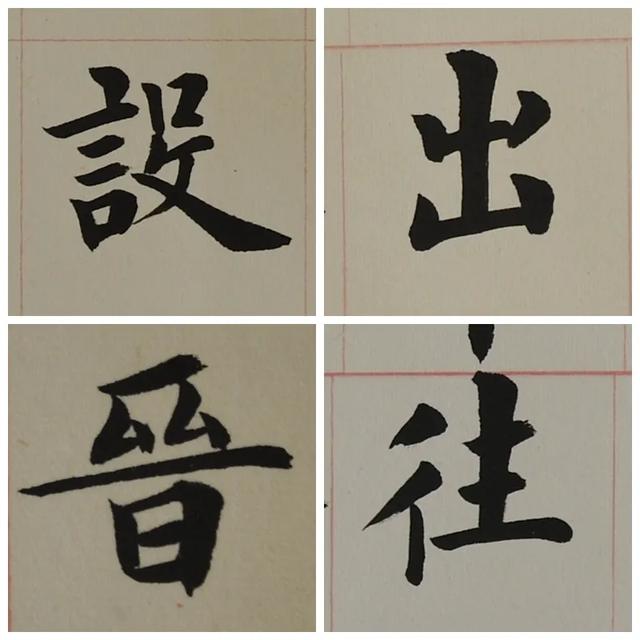 設出
晉往